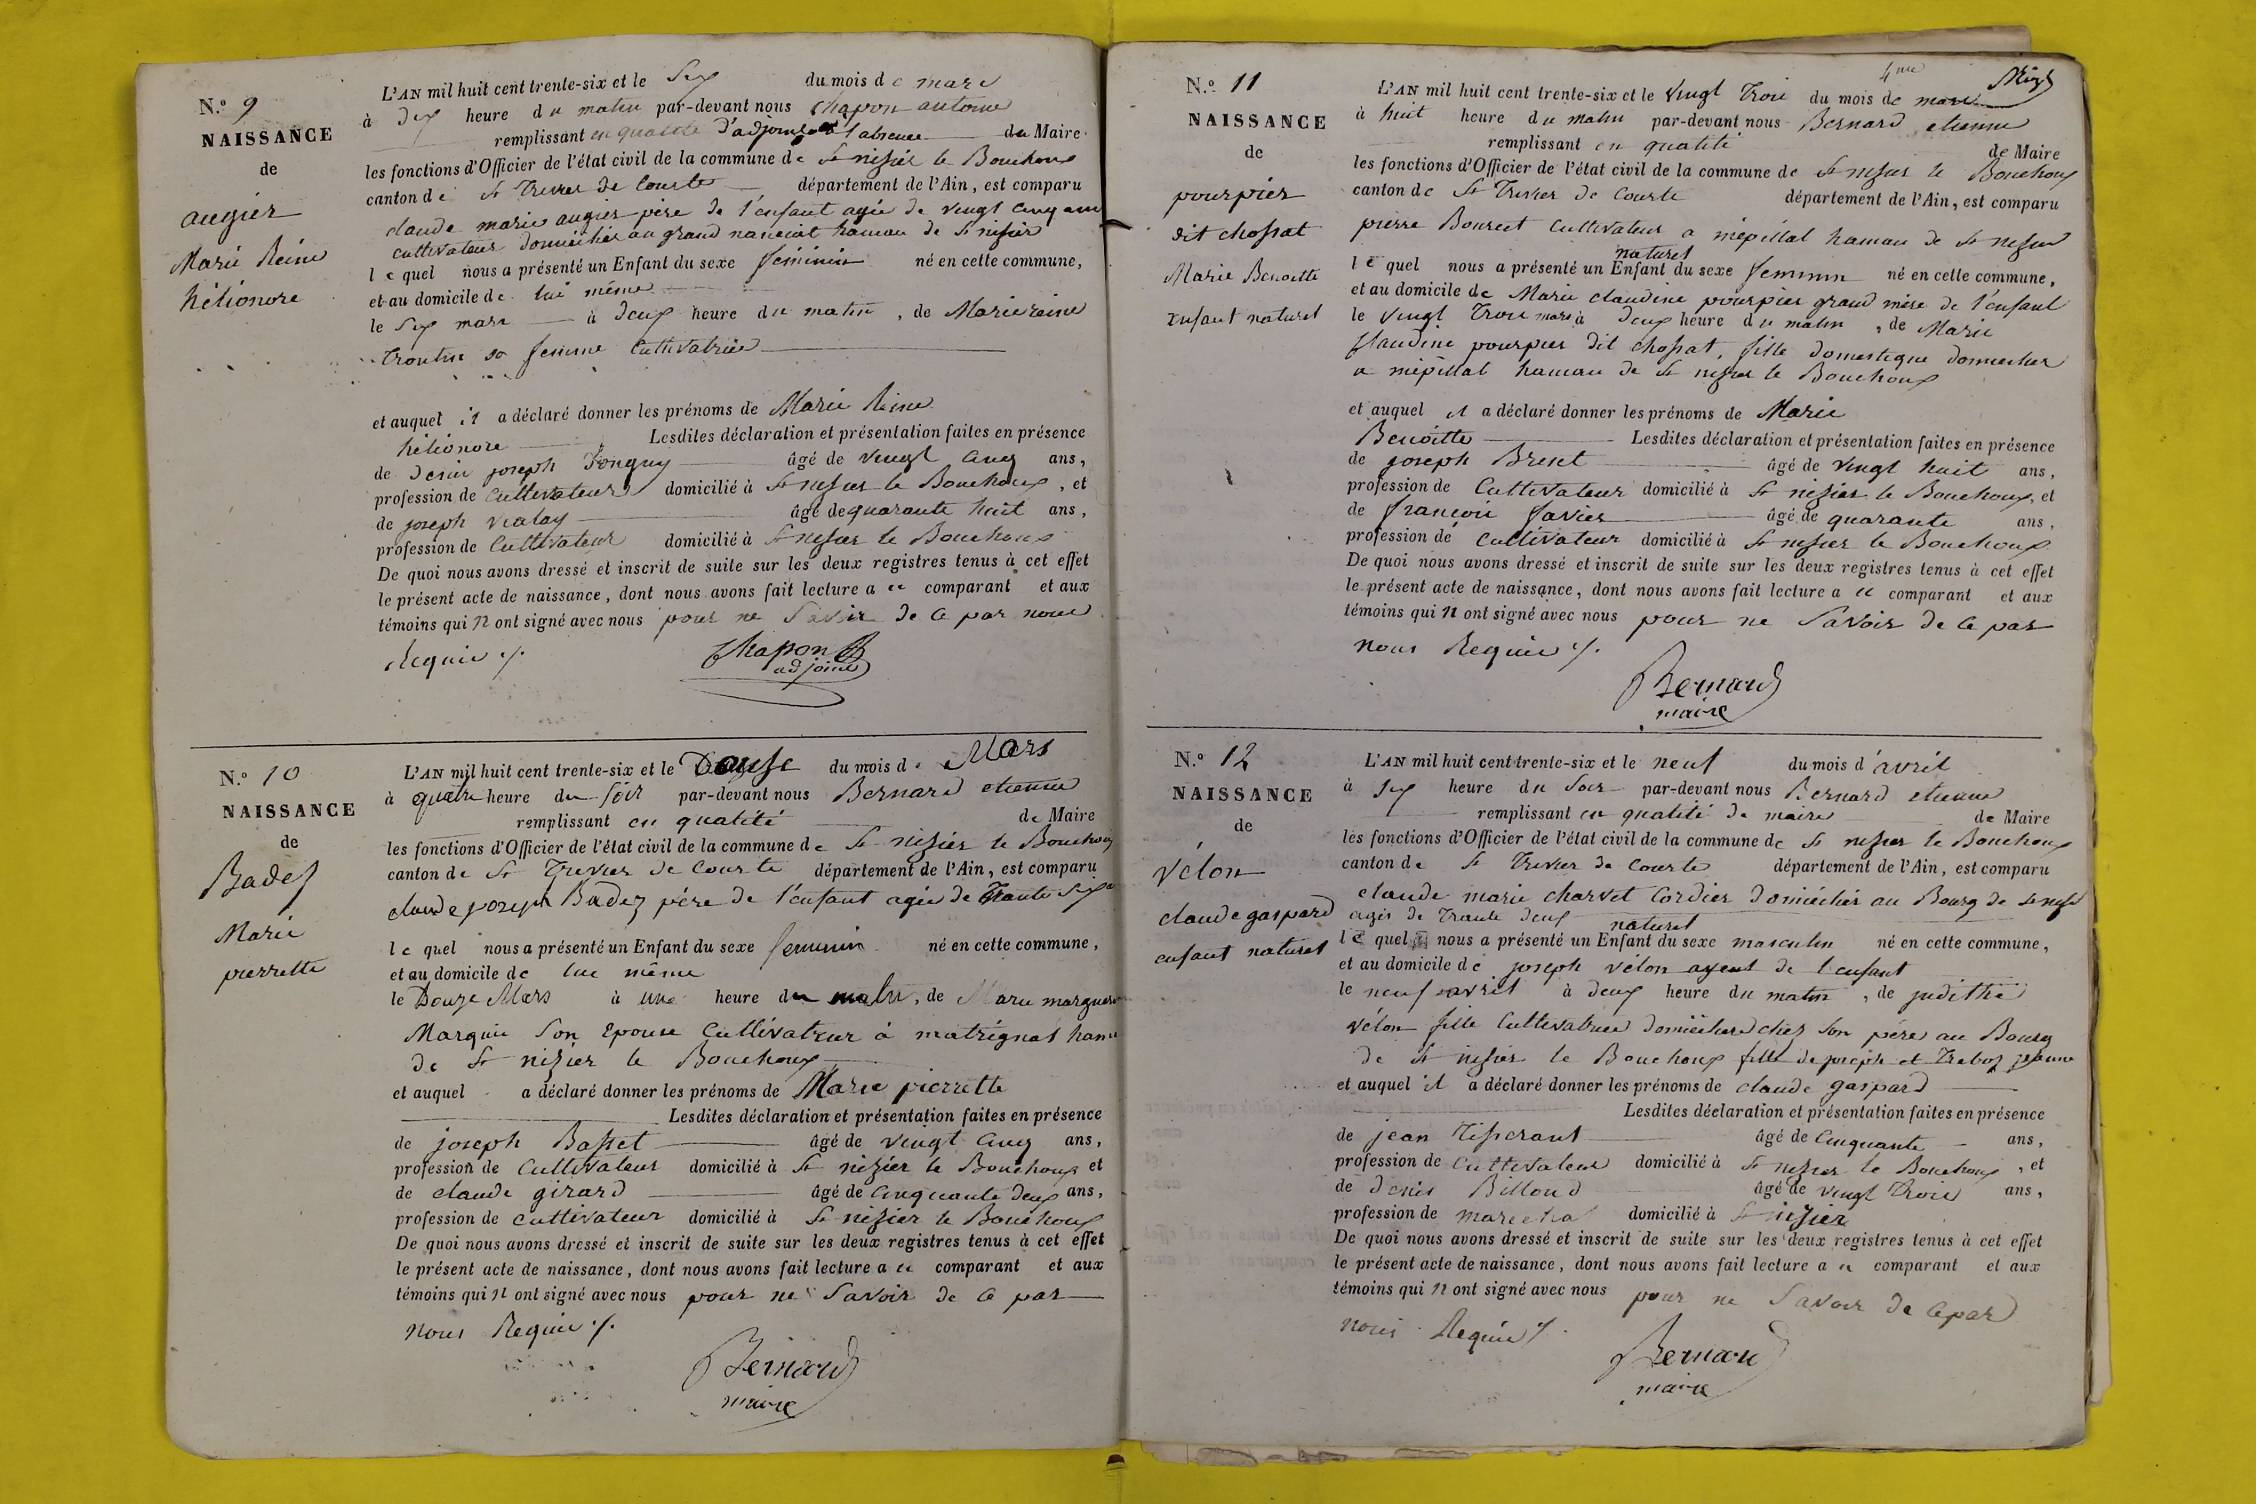 N.º 9
NAISSANCE
de
augier
Marie Reine
héliónore
L'AN mil huit cent trente-six et le six du mois de mars
à dix heure du matin par-devant nous chapon antoine
remplissant en qualité d'adjoint l'absence du Maire
les fonctions d'Officier de l'état civil de la commune de St nizier le Bouchoux
canton de St Trivier de Courte département de l'Ain, est comparu
claude marie augier père de l'enfant agée de vingt cinq ans
cultivateur domicilié au grand nanciat hameau de St nizier
le quel nous a présenté un Enfant du sexe féminin né en cette commune,
et au domicile de lui même
le six mars à deux heure du matin, de Marie reine
Troutin sa femme Cultivatrice
et auquel il a déclaré donner les prénoms de Marie Reine
héliónore Lesdites déclaration et présentation faites en présence
de denis joseph âgé de vingt cinq ans,
profession de Cultivateur domicilié à St nizier le Bouchoux, et
de joseph vialay âgé de quarante huit ans,
profession de Cultivateur domicilié à St nizier le Bouchoux
De quoi nous avons dressé et inscrit de suite sur les deux registres tenus à cet effet
le présent acte de naissance, dont nous avons fait lecture a ce comparant et aux
témoins qui n ont signé avec nous pour ne Savoir de ce par nous
Requis ./.
Chapon
adjoint
N.º 10
NAISSANCE
de
Badez
Marie
pierrette
L'AN mil huit cent trente-six et le Douze du mois de Mars
à quatre heure du soir par-devant nous Bernard etienne
remplissant en qualité de Maire
les fonctions d'Officier de l'état civil de la commune de St nizier le Bouchoux
canton de St Trivier de Courte département de l'Ain, est comparu
claude joseph Badez père de l'enfant agée de Trante six
le quel nous a présenté un Enfant du sexe feminin né en cette commune,
et au domicile de lui même
le Douze Mars à une heure du matin, de Marie marguerite
Marquis Son Epouse Cultivateur à matrignat hameau
de St nizier le Bouchoux
et auquel a déclaré donner les prénoms de Marie pierrette
Lesdites déclaration et présentation faites en présence
de joseph Basset âgé de vingt cinq ans,
profession de Cultivateur domicilié à St nizier le Bouchoux et
de claude girard âgé de cinquante deux ans,
profession de cultivateur domicilié à St nizier le Bouchoux
De quoi nous avons dressé et inscrit de suite sur les deux registres tenus à cet effet
le présent acte de naissance, dont nous avons fait lecture a ce comparant et aux
témoins qui n ont signé avec nous pour ne Savoir de ce par
nous Requis ./.
Bernard
maire
4me
N.º 11
NAISSANCE
de
pourpier
dit chossat
Marie Benoitte
Enfant naturel
L'AN mil huit cent trente-six et le vingt Trois du mois de mars
à huit heure du matin par-devant nous Bernard etienne
remplissant en qualité de Maire
les fonctions d'Officier de l'état civil de la commune de St nizier le Bouchoux
canton de St Trivier de Courte département de l'Ain, est comparu
pierre Bourcet Cultivateur a mépillat hameau de St nizier
naturel
le quel nous a présenté un Enfant du sexe feminin né en cette commune,
et au domicile de Marie claudine pourpier grand mère de l'enfant
le vingt Trois mars à deux heure du matin, de Marie
flaudine pourpier dit chossat, fille domestique domiciliée
a mépillat hameau de St nizier le Bouchoux
et auquel il a déclaré donner les prénoms de Marie
Benoitte Lesdites déclaration et présentation faites en présence
de joseph Brevet âgé de vingt huit ans,
profession de Cultivateur domicilié à St nizier le Bouchoux, et
de françois favier âgé de quarante ans,
profession de Cultivateur domicilié à St nizier le Bouchoux
De quoi nous avons dressé et inscrit de suite sur les deux registres tenus à cet effet
le présent acte de naissance, dont nous avons fait lecture a ce comparant et aux
témoins qui n ont signé avec nous pour ne Savoir de ce par
nous Requis ./.
Bernard
maire
N.º 12
NAISSANCE
de
vélon
claude gaspard
enfant naturel
L'AN mil huit cent trente-six et le neuf du mois d'avril
à six heure du Soir par-devant nous Bernard etienne
remplissant en qualité de maire de Maire
les fonctions d'Officier de l'état civil de la commune de St nizier le Bouchoux
canton de St Trivier de Courte département de l'Ain, est comparu
claude marie charvet Cordier domicilié au Bourg de St nizier
agée de Trante deux
naturel
le quel nous a présenté un Enfant du sexe masculin né en cette commune,
et au domicile de joseph vélon ayeul de l'enfant
le neuf avril à deux heure du matin, de judithe
vélon fille Cultivatrice domiciliée chez Son père au Bourg
de St nizier le Bouchoux fille de joseph et Treboz jeanne
et auquel il a déclaré donner les prénoms de claude gaspard
Lesdites déclaration et présentation faites en présence
de jean Tisserant âgé de Cinquante ans,
profession de cultivateur domicilié à St nizier le Bouchoux, et
de denis Billoud âgé de vingt Trois ans,
profession de marechal domicilié à St nizier
De quoi nous avons dressé et inscrit de suite sur les deux registres tenus à cet effet
le présent acte de naissance, dont nous avons fait lecture a ce comparant et aux
témoins qui n ont signé avec nous pour ne Savoir de ce par
nous Requis ./.
Bernard
maire